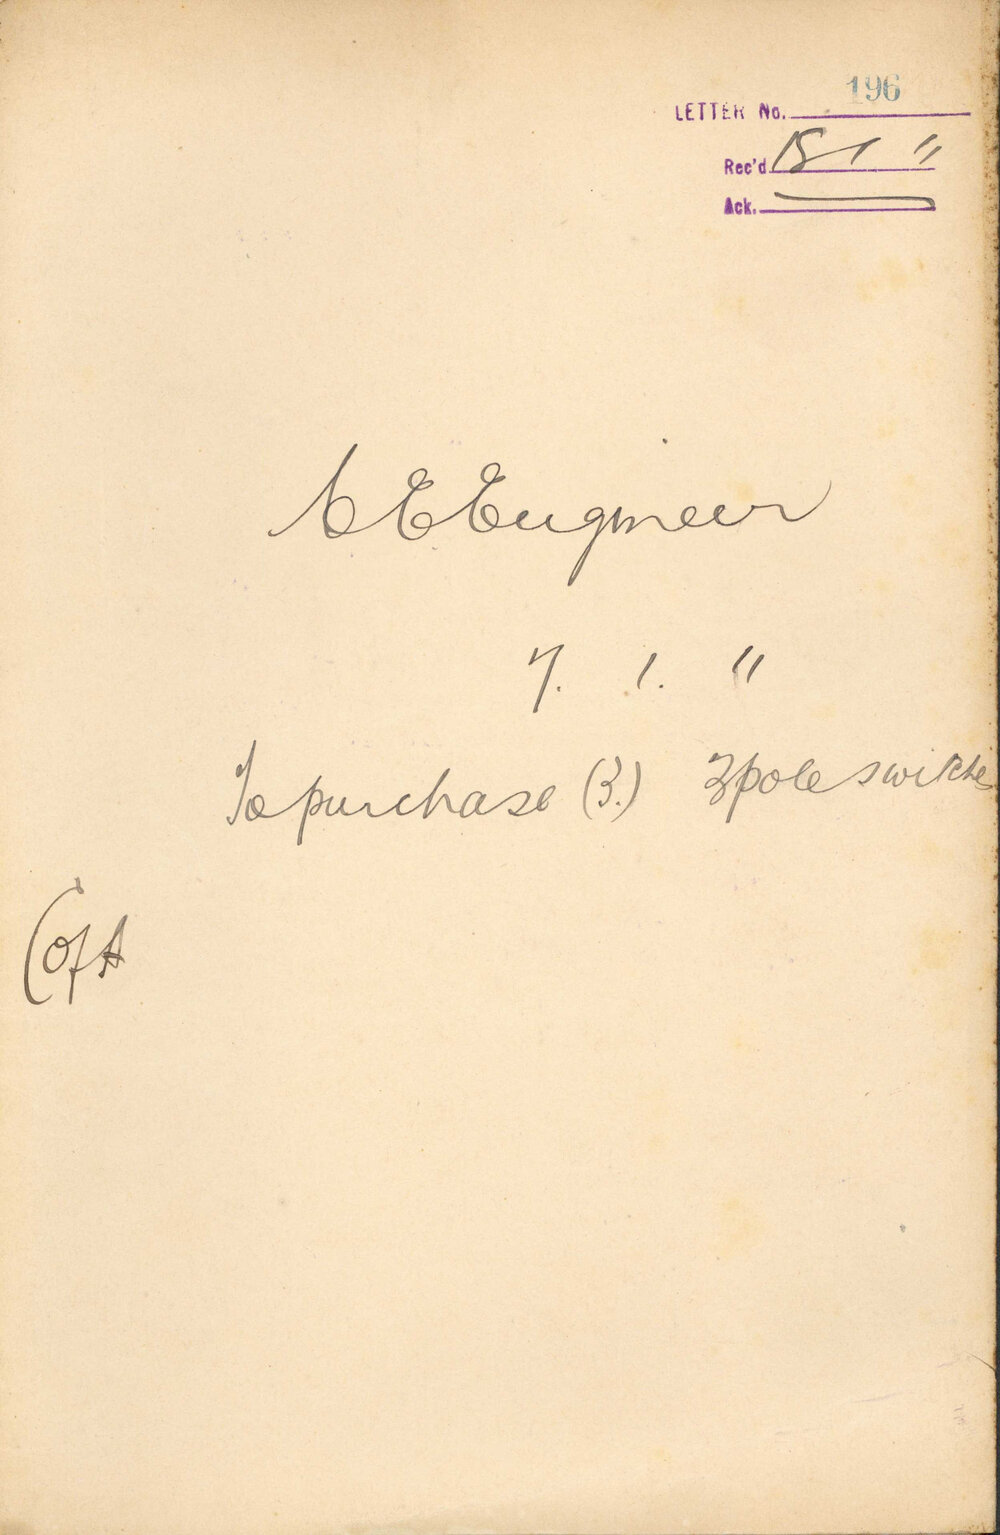 LETTER No. 196
Rec'd 18 1 11
Ack.
C E Engineer
7. 1. 11
To purchase (3.) 3 pole switche
C of A